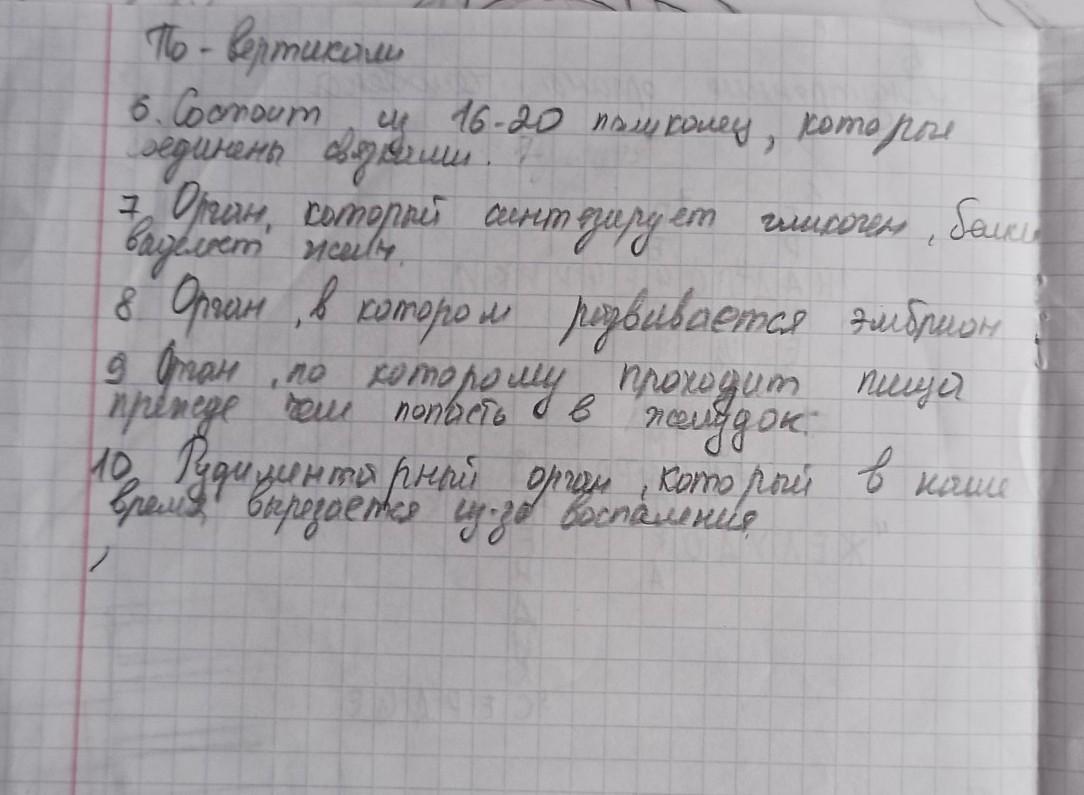 По - вертикали
6. Состоит из 16-20 полуколец, которые
соединены связками.
7 Орган, который синтезирует гликоген, белки
выделяет желч.
8 Орган, в котором развивается эмбрион
9 Орган, по которому проходит пища
прежде чем попасть в желудок.
10. Рудиментарный орган, который в наше
время вырезается из-за воспаления.